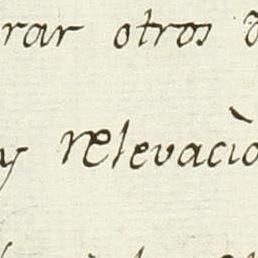 rar otros
y relevaciò